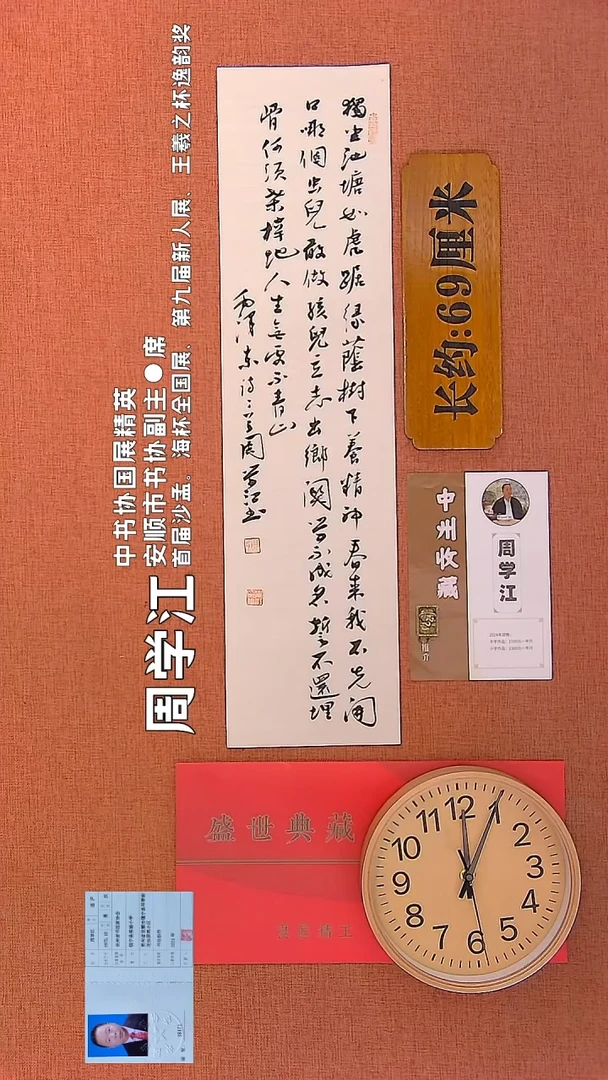 周学江
中书协国展精英
安顺市书协副主●席
首届沙孟。海杯全国展、第九届新人展、王羲之杯逸韵奖
獨坐池塘如虎踞綠蔭樹下養精神春來我不先開
口哪個虫兒敢做孩兒立志出鄉關學不成名誓不還埋
骨何須桑梓地人生無處不青山
毛澤東詩二首周學江書
长约:69厘米
收藏
推介
周学江
盛世典藏
12
1
2
3
4
5
6
7
8
9
10
11